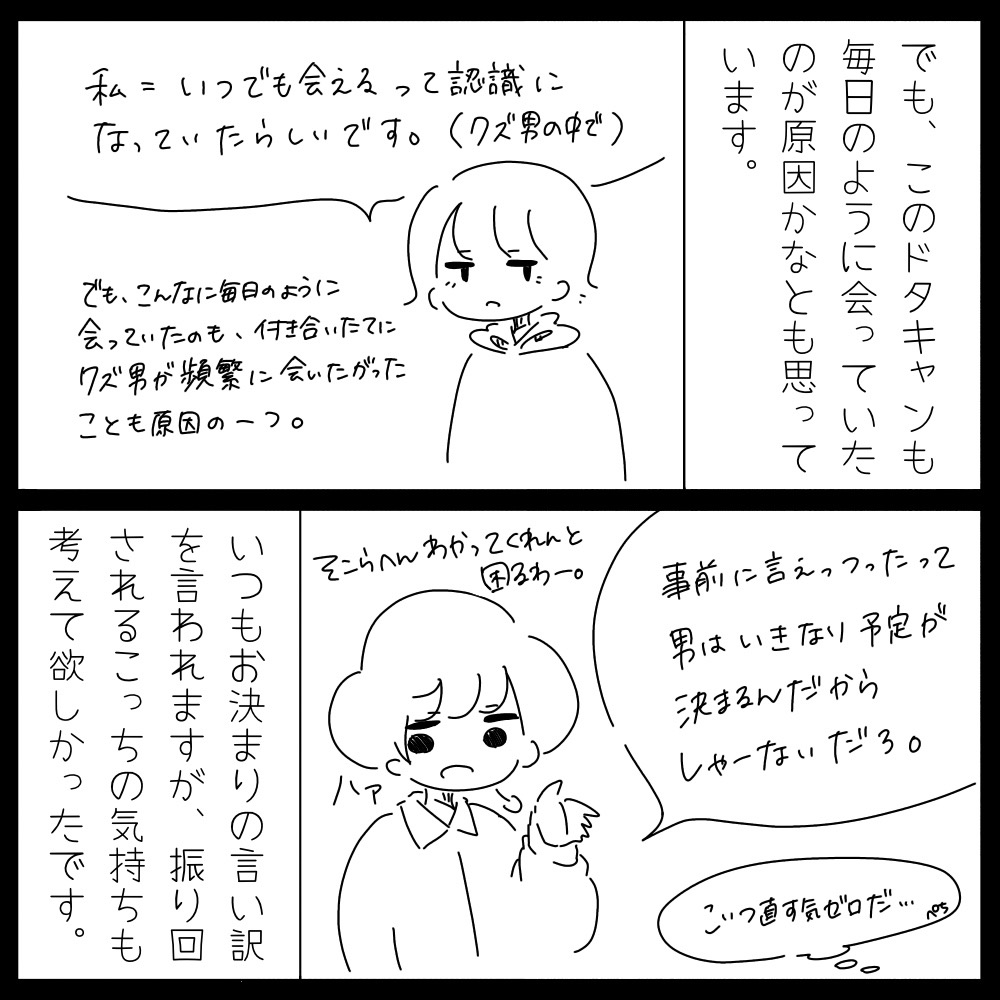 でも、このドタキャンも
毎日のように会っていた
のが原因かなとも思って
います。
私=いつでも会えるって認識に
なっていたらしいです。(クズ男の中で)
でも、こんなに毎日のように
会っていたのも、付き合いたてに
クズ男が頻繁に会いたがった
ことも原因の一つ。
事前に言えっつったって
男はいきなり予定が
決まるんだから
しゃーないだろ。
そこらへんわかってくれんと
困るわー。
ハァ
こいつ直す気ゼロだ…
いつもお決まりの言い訳
を言われますが、振り回
されるこっちの気持ちも
考えて欲しかったです。